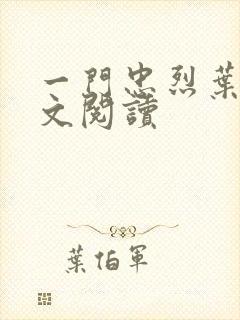 一門忠烈葉
文閱讀
葉伯軍